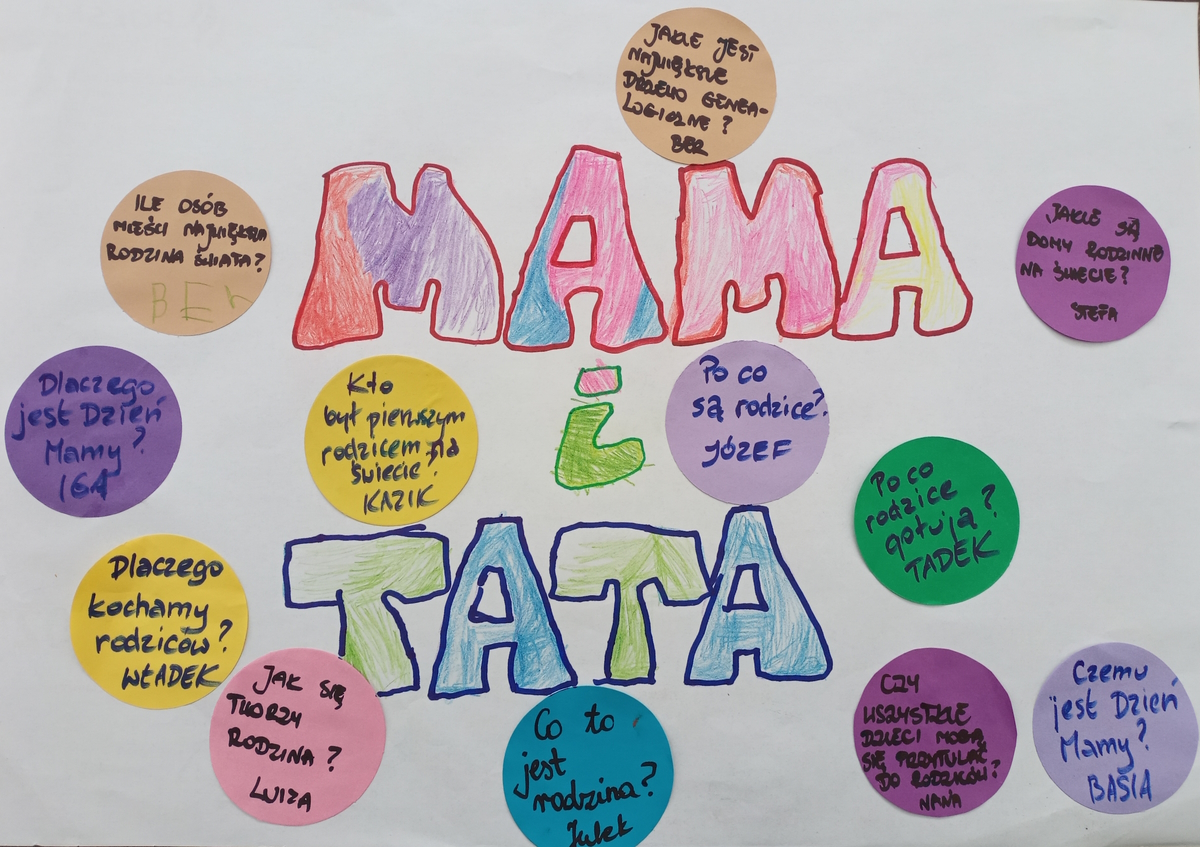 JAKIE JEST
NAJWIĘKSZE
DRZEWO GENEA-
LOGICZNE?
BER
ILE OSÓB
MIEŚCI NAJWIĘKSZA
RODZINA ŚWIATA?
BER
MAMA
JAKIE SĄ
DOMY RODZINNE
NA ŚWIECIE?
STEFA
Dlaczego
jest Dzień
Mamy?
IGA
Kto
był pierwszym
rodzicem na
świecie?
KAZIK
i
Po co
są rodzice?
JÓZEF
Po co
rodzice
gotują?
TADEK
TATA
Dlaczego
kochamy
rodziców?
WŁADEK
JAK SIĘ
TWORZY
RODZINA?
LUIZA
Co to
jest
rodzina?
Julek
CZY
WSZYSTKIE
DZIECI MOGĄ
SIĘ PRZYTULAĆ
DO RODZICÓW?
NANA
Czemu
jest Dzień
Mamy?
BASIA